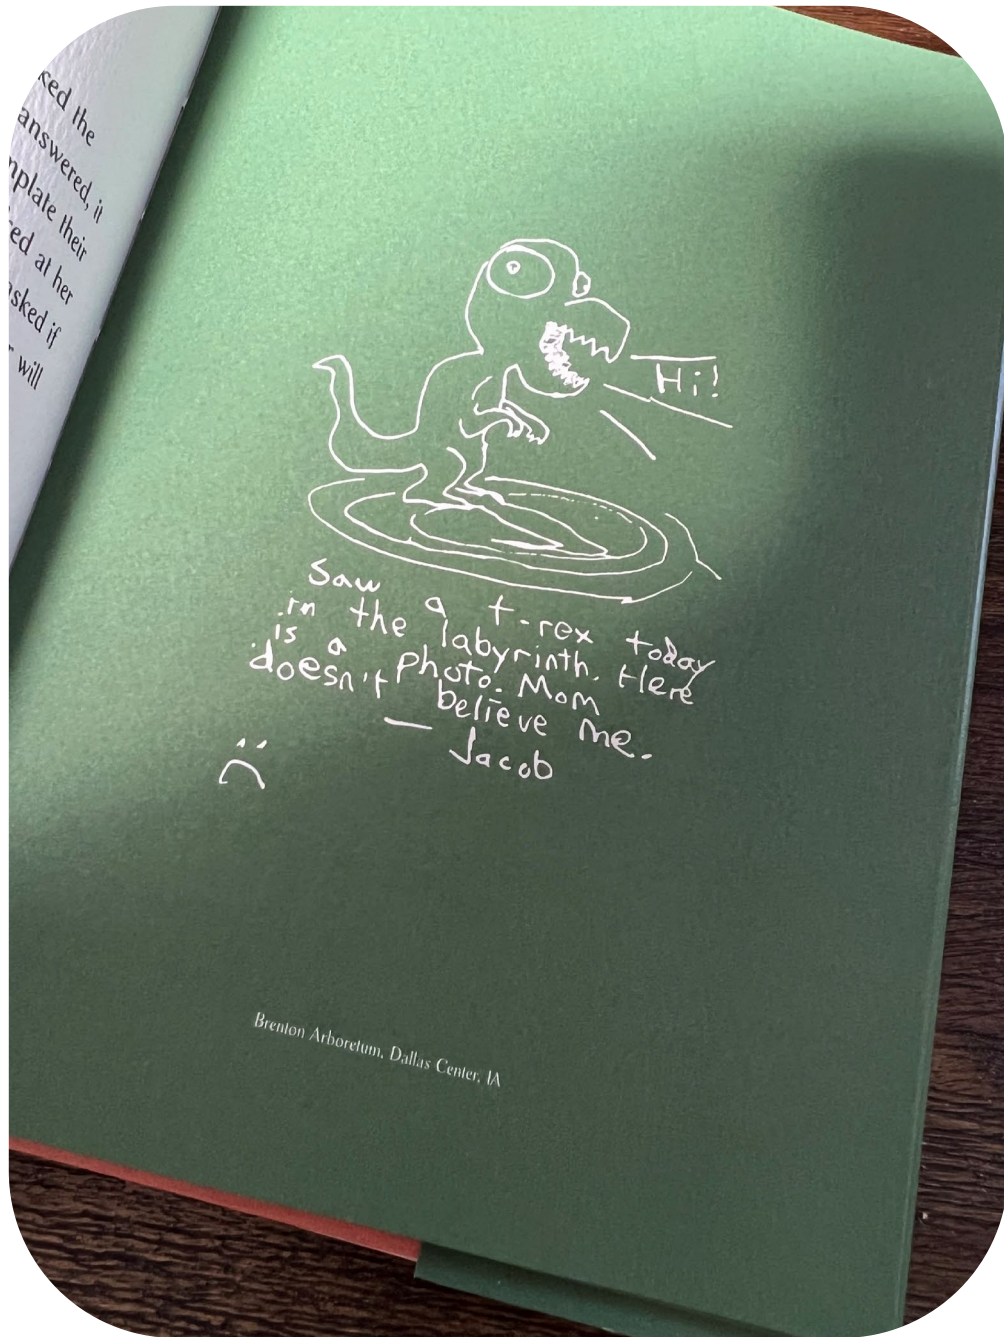 ked the
answered, it
mplate their
ed at her
asked if
will
Hi!
Saw a t-rex today
in the labyrinth. Here
is a photo. Mom
doesn't believe me.
— Jacob
:(
Brenton Arboretum, Dallas Center, IA